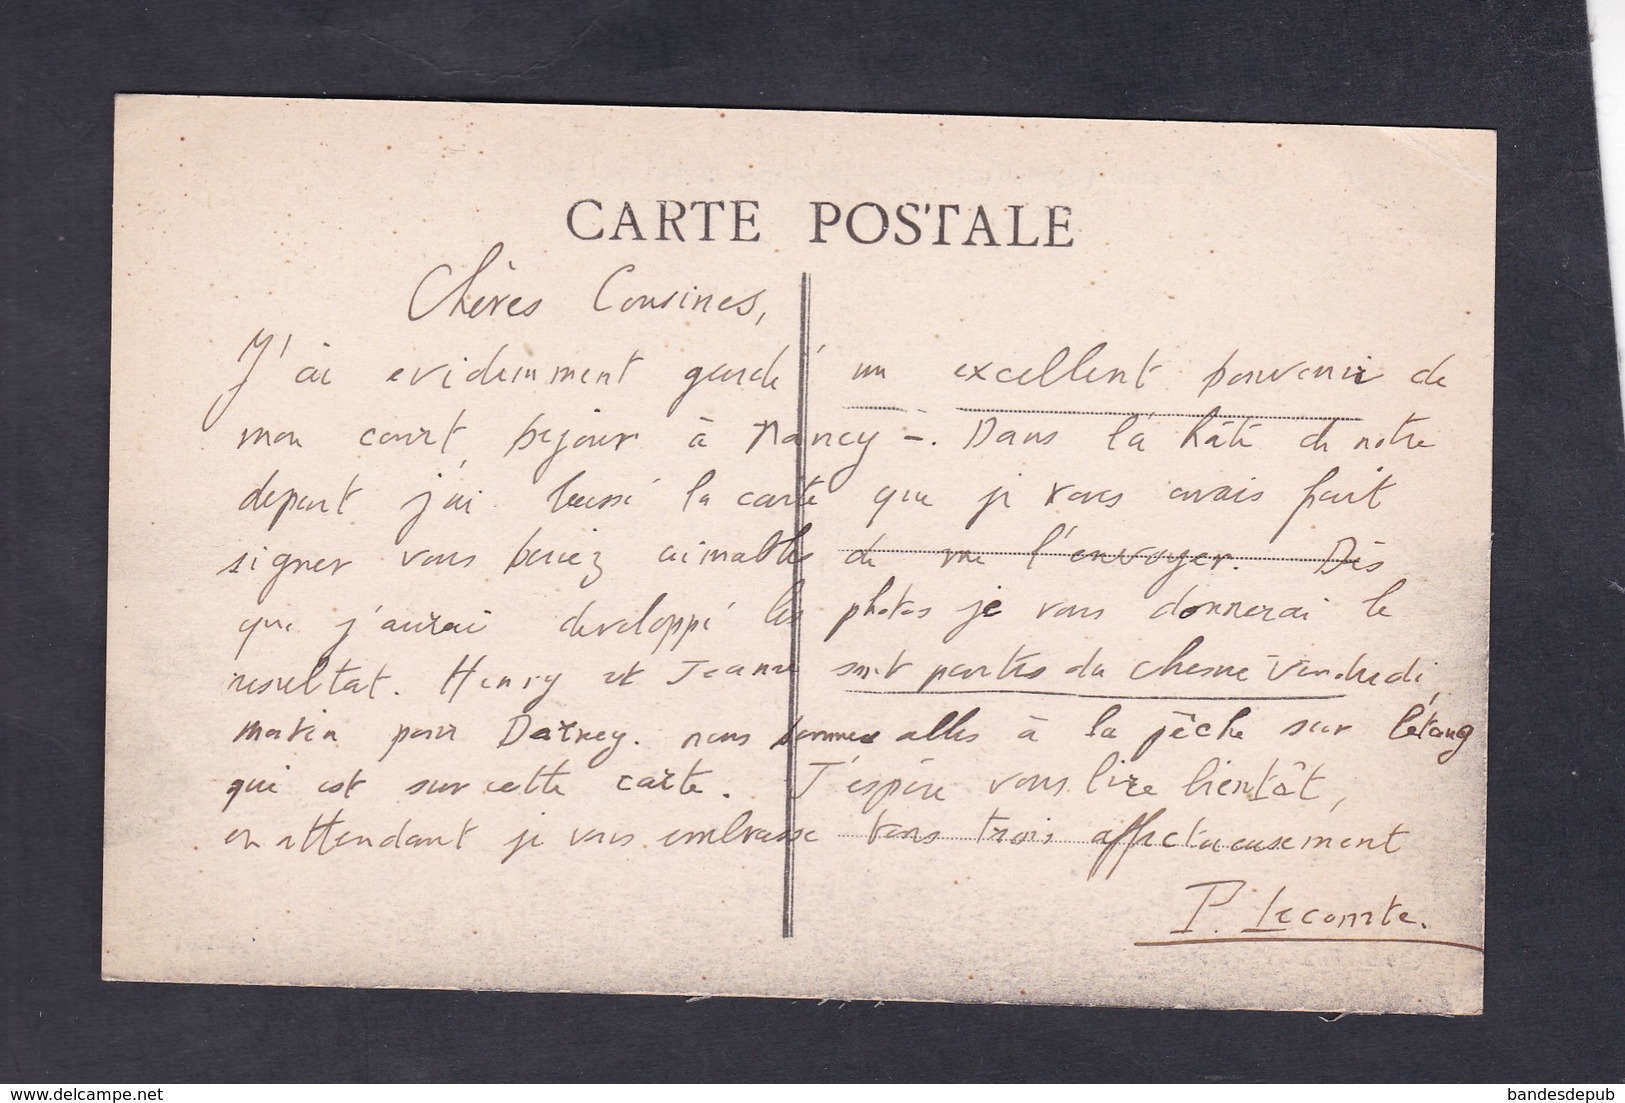 CARTE POSTALE
Chères Cousines,
J'ai evidemment gardé un excellent souvenir de
mon court sejour à Nancy -. Dans la hâte de notre
depart j'ai laissé la carte que je vous avais fait
signer vous seriez aimables de me l'envoyer. Dès
que j'aurai developpé les photos je vous donnerai le
resultat. Henry et Jeanne sont partis du chesne Vendredi
matin pour Darney. nous sommes allés à la pêche sur l'étang
qui est sur cette carte. J'espère vous lire bientôt,
en attendant je vous embrasse tous trois affectueusement
P. Lecomte.
delcampe.net
bandesdepub